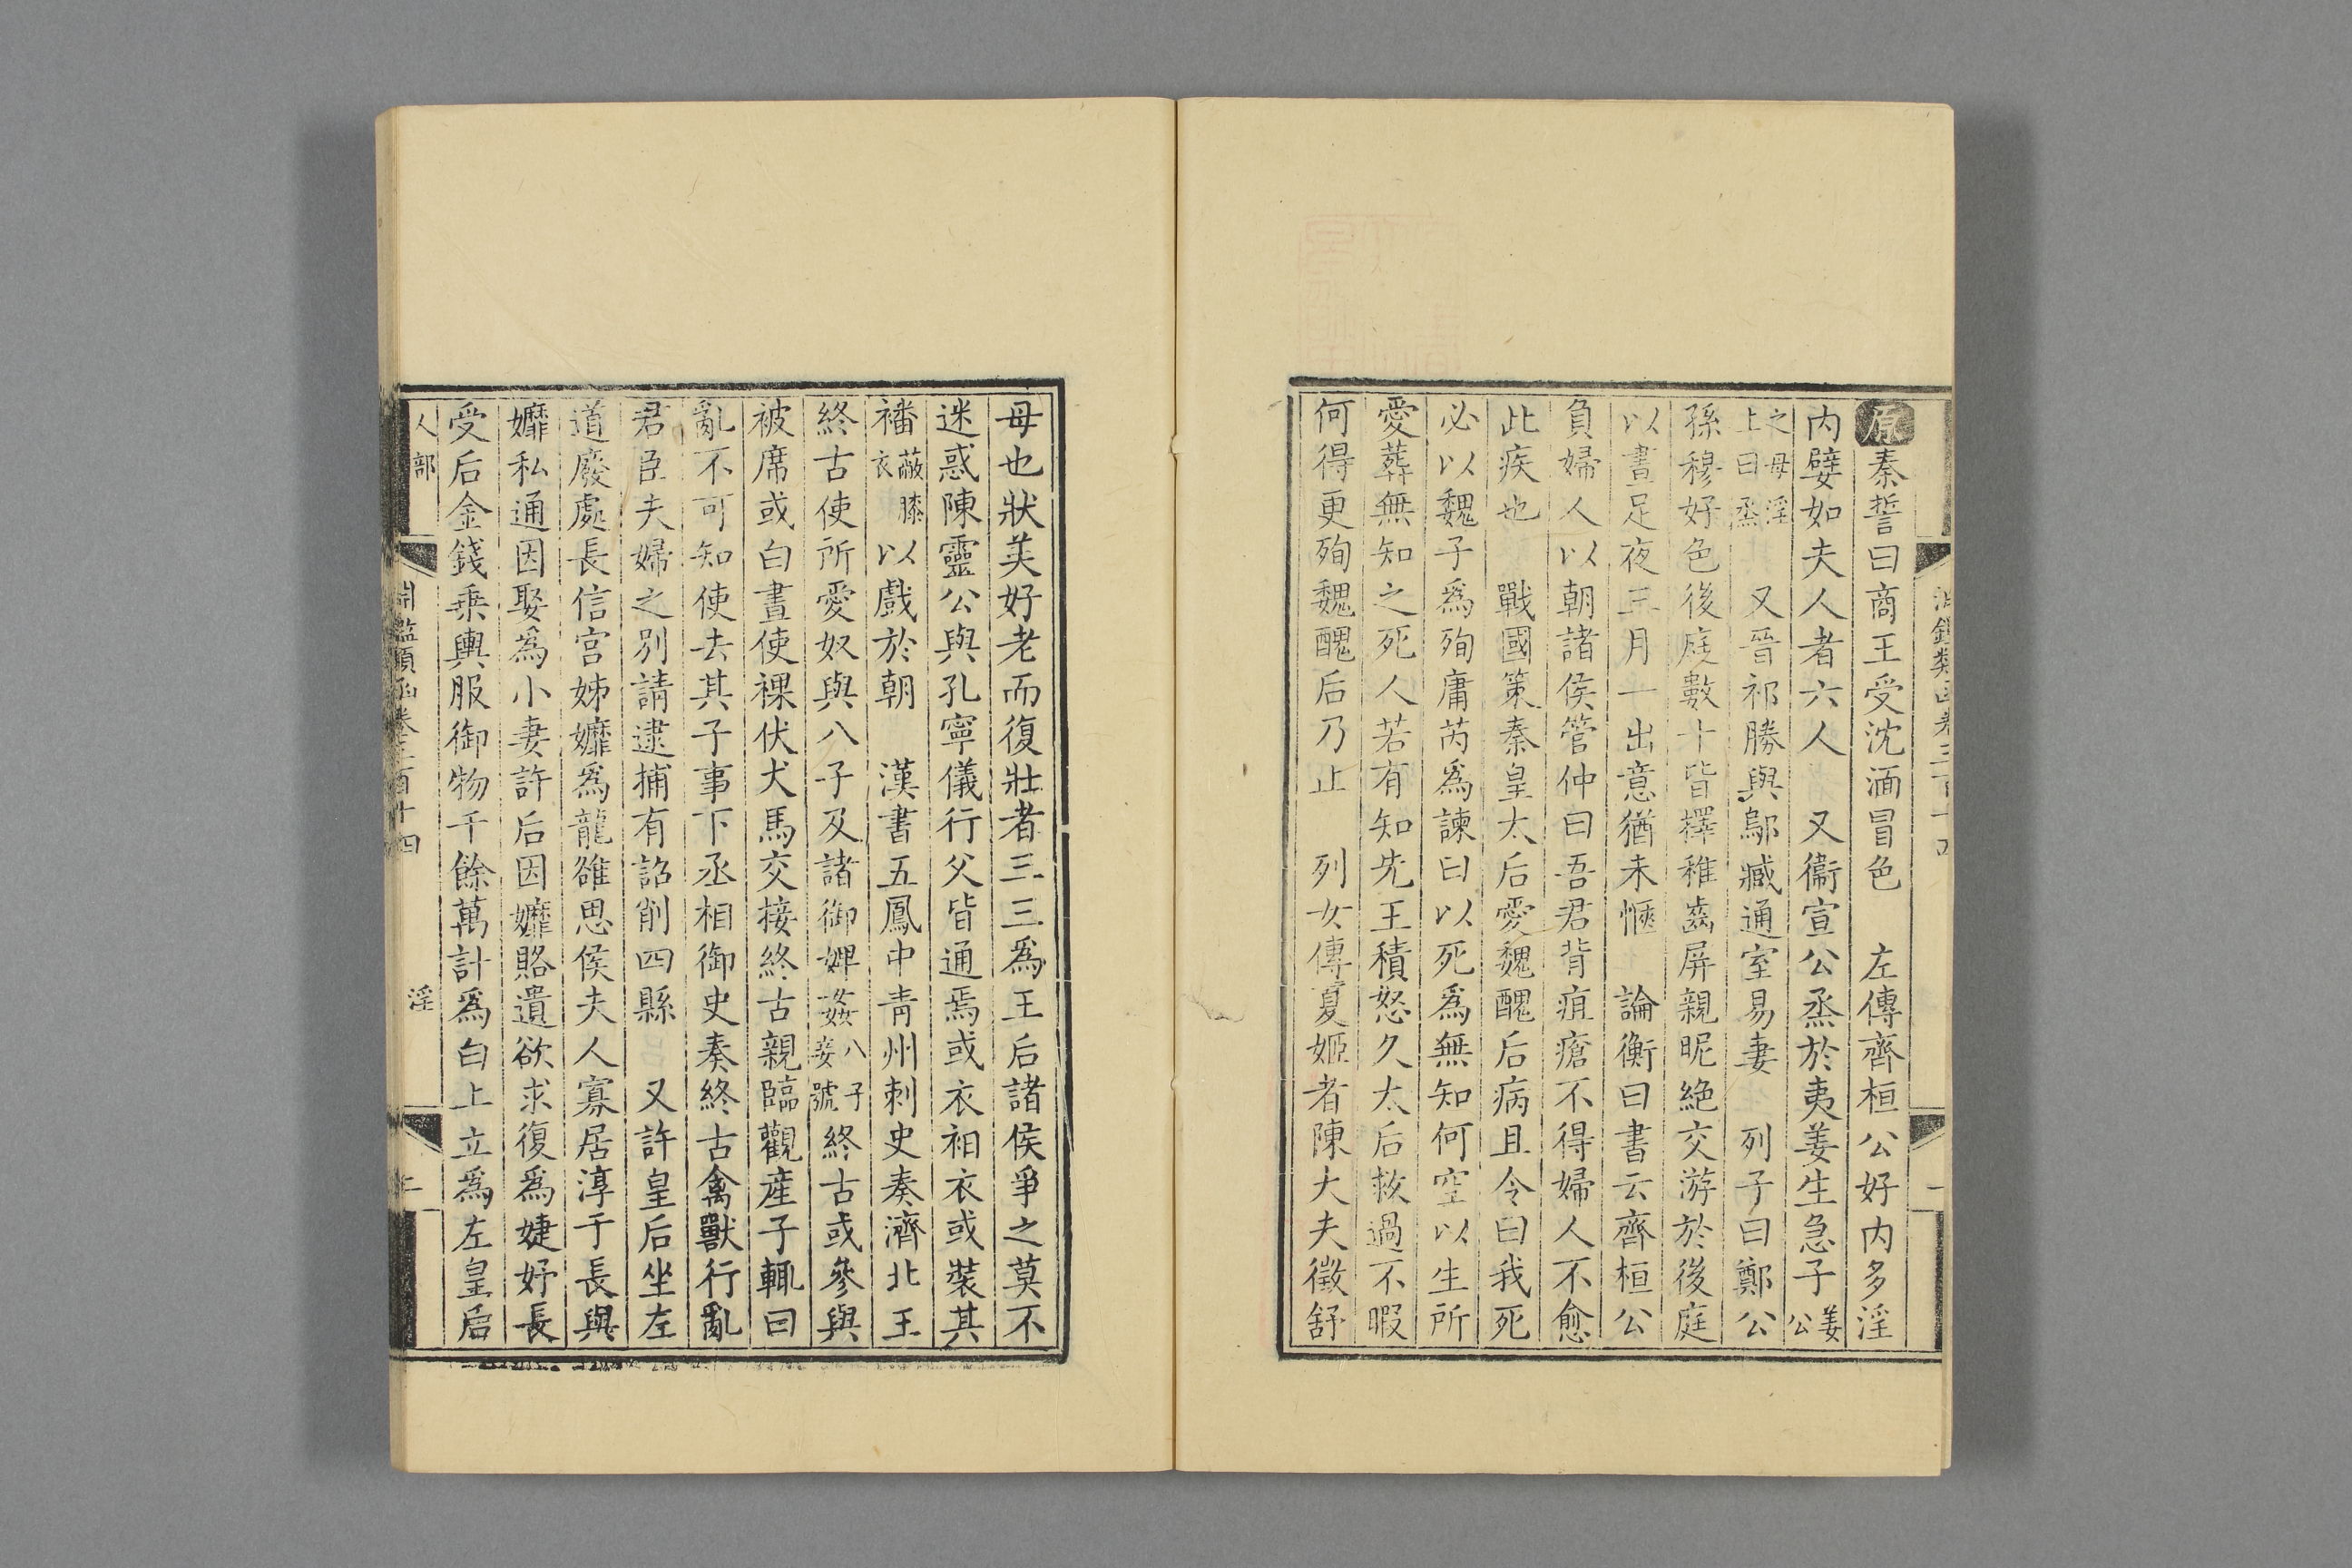 原秦誓曰商王受沈湎冒色　左傳齊桓公好内多淫
内嬖如夫人者六人　又衞宣公烝於夷姜生急子姜公
之母淫上曰烝　又晉祁勝與鄔臧通室易妻　列子曰鄭公
孫穆好色後庭數十皆擇稚齒屏親昵絶交游於後庭
以晝足夜三月一出意猶未愜　論衡曰書云齊桓公
負婦人以朝諸侯管仲曰吾君背疽瘡不得婦人不愈
此疾也　戰國策秦皇太后愛魏醜后病且令曰我死
必以魏子爲殉庸芮爲諫曰以死爲無知何空以生所
愛葬無知之死人若有知先王積怒久太后救過不暇
何得更殉魏醜后乃止　列女傳夏姬者陳大夫徵舒
母也狀美好老而復壯者三三爲王后諸侯爭之莫不
迷惑陳靈公與孔寧儀行父皆通焉或衣衵衣或裝其
襎蔽膝衣以戲於朝　漢書五鳳中青州刺史奏濟北王
終古使所愛奴與八子及諸御婢姦八子妾號終古或參與
被席或白晝使祼伏犬馬交接終古親臨觀產子輒曰
亂不可知使去其子事下丞相御史奏終古禽獸行亂
君臣夫婦之別請逮捕有詔削四縣　又許皇后坐左
道廢處長信宫姊孊爲龍雒思侯夫人寡居淳于長與
孊私通因娶爲小妻許后因孊賂遺欲求復爲婕妤長
受后金錢乗輿服御物千餘萬計爲白上立爲左皇后
人部
淵鑑類函卷三百十四
淫
二